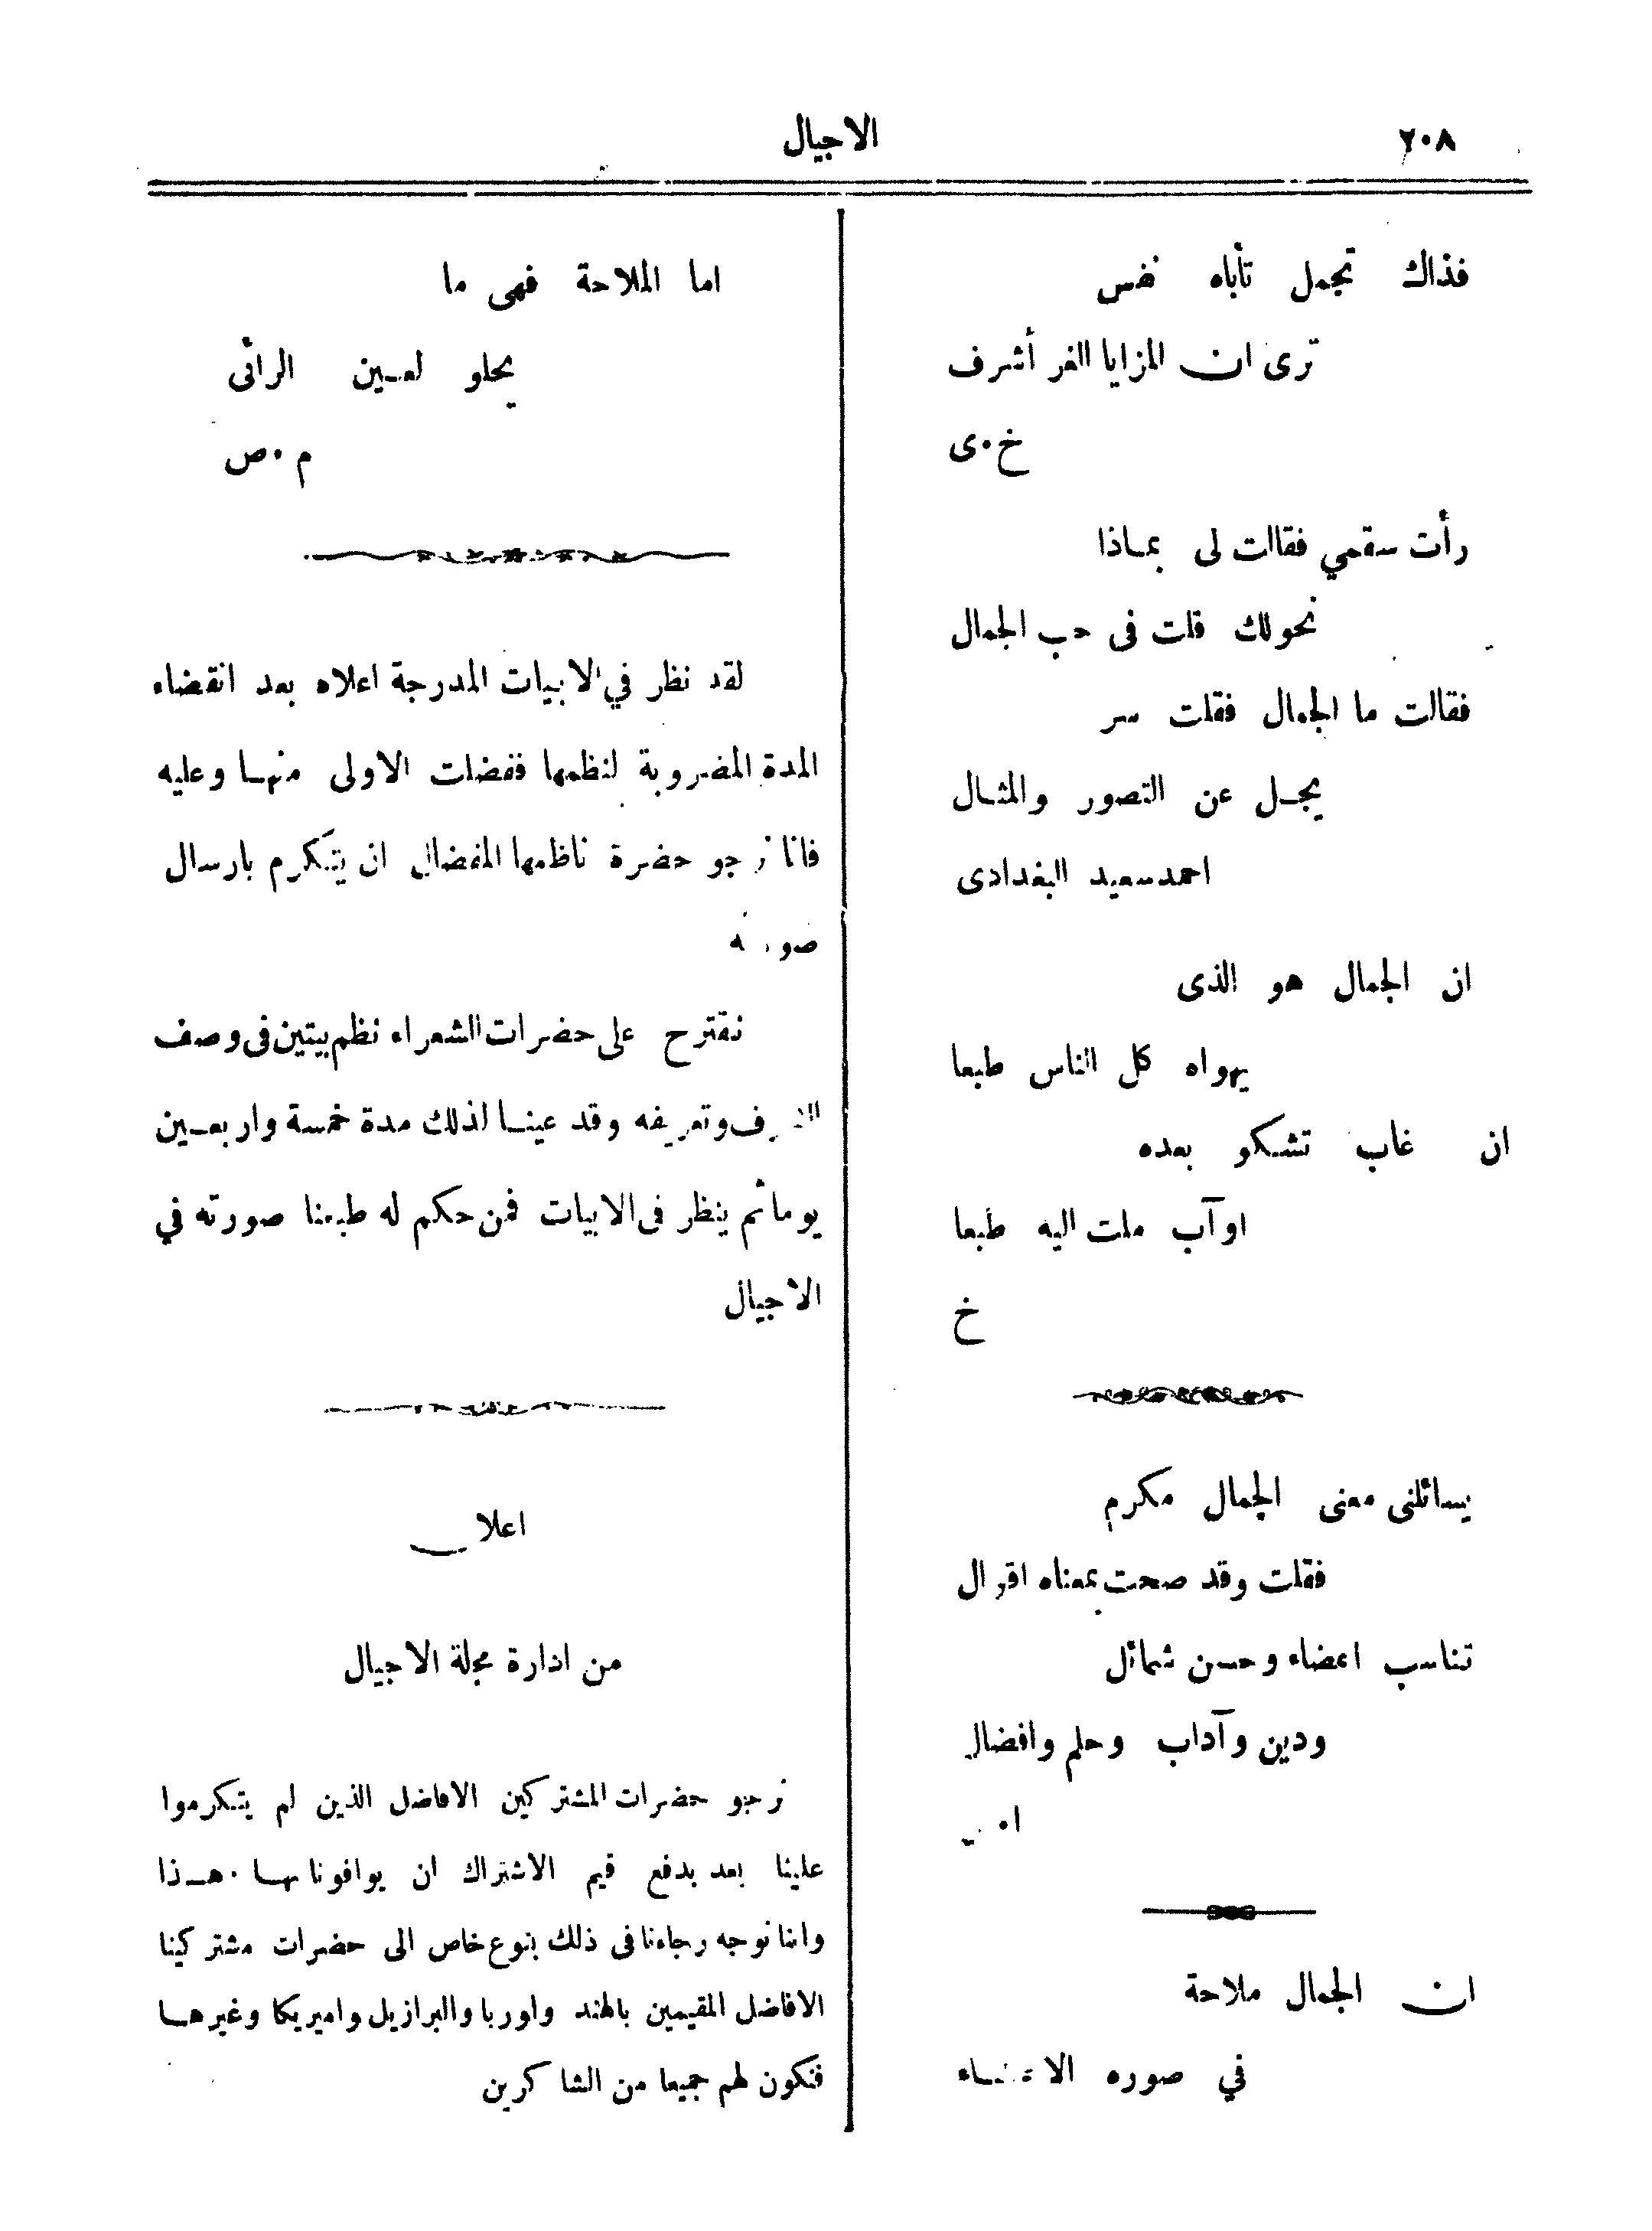 ٢٠٨
الاجيال
فذاك تجمل تأباه نفس
ترى ان المزايا الغر أشرف
خ٠ى
رأت سقمي فقالت لى بماذا
نحولك قلت فى حب الجمال
فقالت ما الجمال فقلت سر
يجل عن التصور والمثال
احمد سعيد البغدادى
ان الجمال هو الذى
يهواه كل الناس طبعا
ان غاب تشكو بعده
اوآب ملت اليه طبعا
خ
يسائلنى معنى الجمال مكرم
فقلت وقد صحت بمعناه اقوال
تناسب اعضاء وحسن شمائل
ودين وآداب وحلم وافضال
ان الجمال ملاحة
في صوره
اما الملاحة فهى ما
يحلو لعين الرائى
م ٠ ص
لقد نظر في الابيات المدرجة اعلاه بعد انقضاء
المدة المضروبة لنظمها ففضلت الاولى منها وعليه
فانا نرجو حضرة ناظمها المفضال ان يتكرم بارسال
صورته
نقترح على حضرات الشعراء نظم بيتين فى وصف
وتعريفه وقد عينا لذلك مدة خمسة واربعين
يوما ثم ينظر فى الابيات فمن حكم له طبعنا صورته في
الاجيال
اعلان
من ادارة مجلة الاجيال
نرجو حضرات المشتركين الافاضل الذين لم يتكرموا
علينا بعد بدفع قيم الاشتراك ان يوافونا بها ٠ هذا
واننا نوجه رجاءنا فى ذلك بنوع خاص الى حضرات مشتركينا
الافاضل المقيمين بالهند واوربا والبرازيل واميريكا وغيرها
فنكون لهم جميعا من الشاكرين